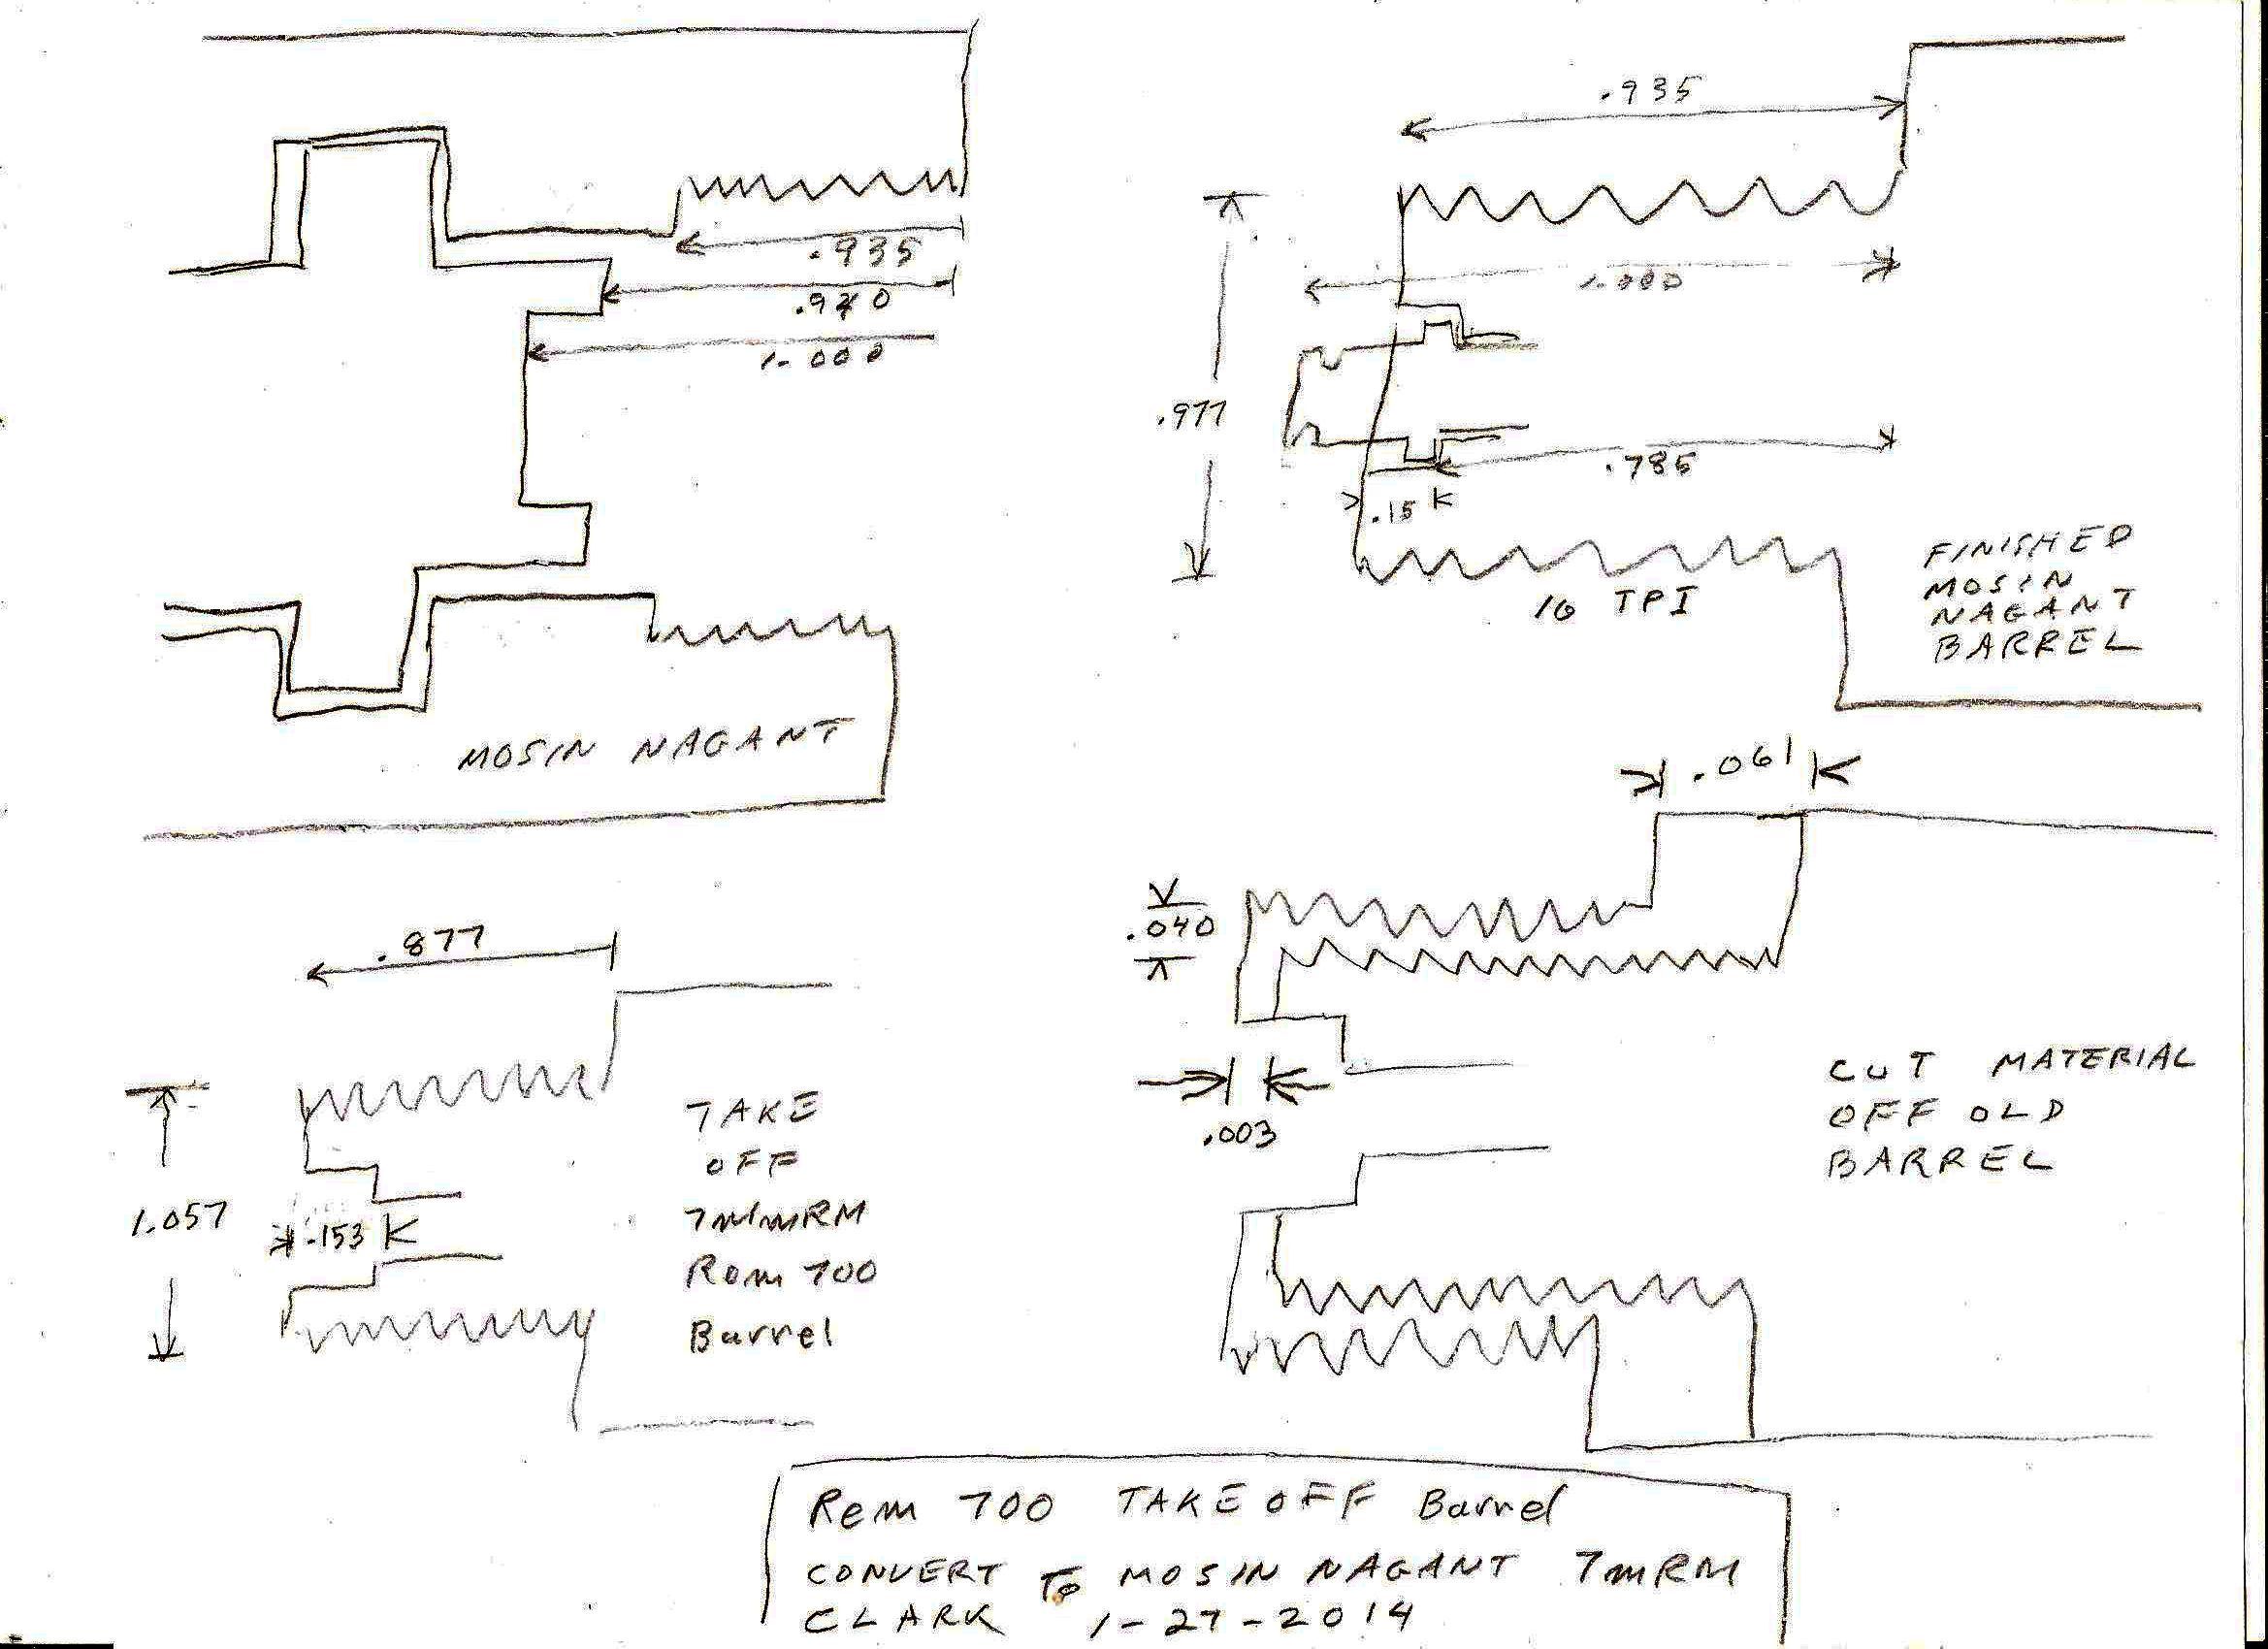 .935
.940
1.000
MOSIN NAGANT
.935
1.000
.977
.785
.15
16 TPI
FINISHED
MOSIN
NAGANT
BARREL
.877
1.057
.153
TAKE
OFF
7mmRM
Rem 700
Barrel
.061
.040
.003
CUT MATERIAL
OFF OLD
BARREL
Rem 700 TAKE OFF Barrel
CONVERT TO MOSIN NAGANT 7mRM
CLARK 1-27-2014